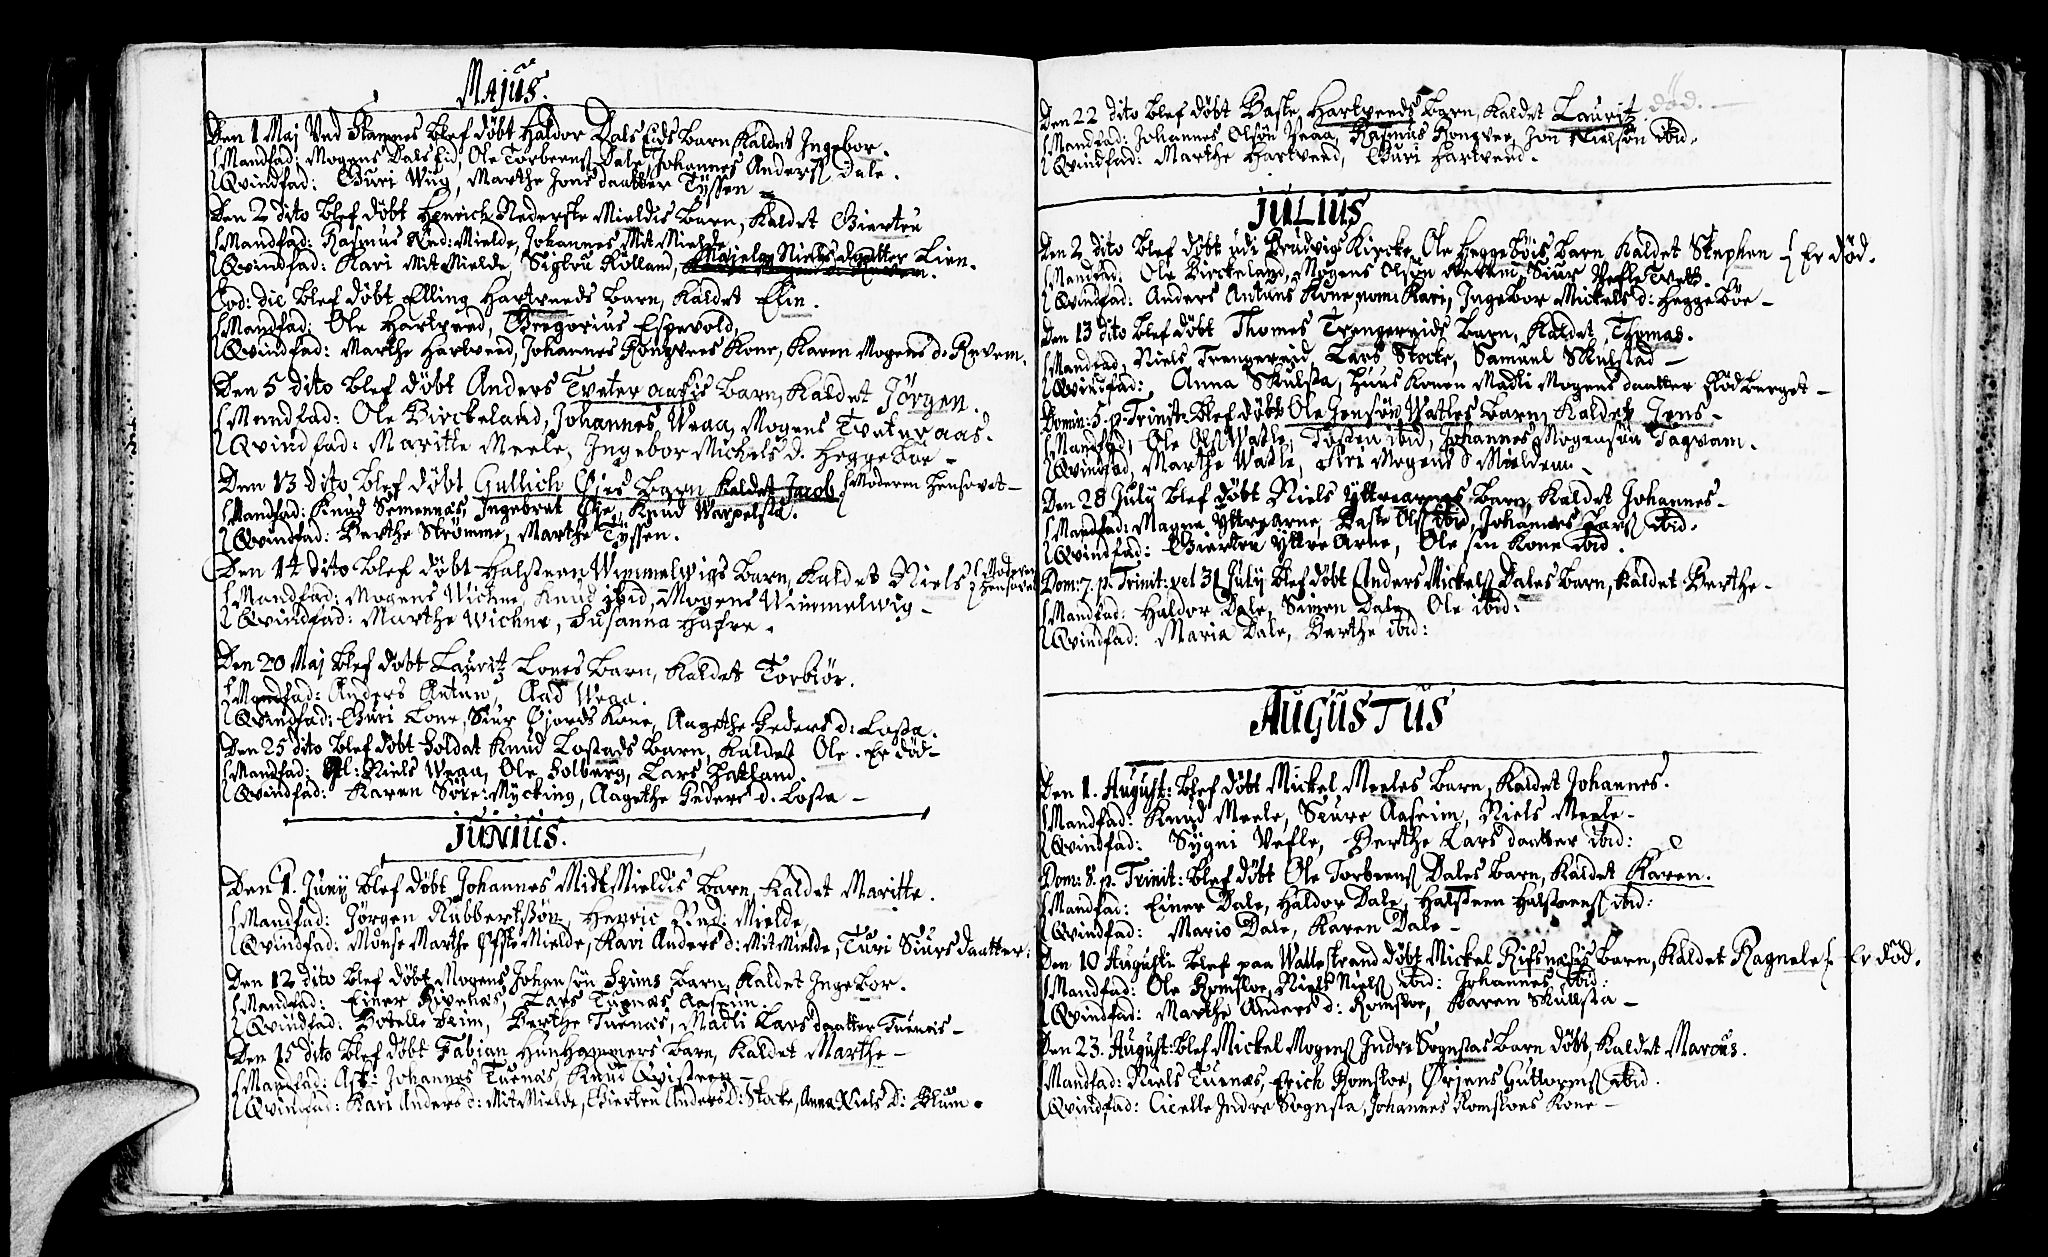 Majus.
Den 1 Maj Ved Stamnes blef døbt Haldor Dals Eids barn kaldet Ingebor.
Mandfad: Mogens Dals Eid, Ole Torbens Dale, Johannes Anders Dale.
Qvindfad: Guri Wiig, Marthe Jons daatter Tyssen
Den 2 dito blef døbt Henrich Nederste Mieldis barn, kaldet Giertru
Mandfad: Rasmus Ned: Mielde, Johannes Mit Mielde
Qvindfad: Kari Mit Mielde, Sigtru Rolland, Majela Niels daatter Lien.
Eod: die blef døbt Elling Hartveeds barn, kaldet Elin.
Mandfad: Ole Hartveed, Gregorius Espevold,
Qvindfad: Marthe Hartveed, Johannes Rongvees Kone, Karen Mogens d: Revem.
Den 5 dito blef døbt Anders Tveter aasis barn, kaldet Jørgen.
Mandfad: Ole Birckeland, Johannes Veaa, Mogens Tveteraas.
Qvindfad: Maritte Meele, Ingebor Michels d. Heggebøe -
Den 13 dito blef døbt Gullich Øies barn kaldet Jacob Moderen hensovet -
Mandfad: Knud Semennæs, Ingebret Øie, Knud Warpelsta.
Qvindfad: Berthe Strømme, Marthe Tyssen.
Den 14 dito blef døbt Halsteen Wimmelwigs barn, kaldet Niels Moderen hensovet
Mandfad: Mogens Wichne, Knud ibid, Mogens Wimmelwig -
Qvindfad: Marthe Wichne, Susanna Hafre.
Den 20 Maj blef døbt Lauritz Lones barn, kaldet Torbiør.
Mandfad: Anders Antun, Aad Veaa.
Qvindfad: Guri Lone, Siur Øjords Kone, Aagethe Peders d: Losta.
Den 25 dito blef døbt Soldat Knud Lostads barn, kaldet Ole. Er død -
Mandfad: Niels Veaa, Ole Solberg, Lars Hatland.
Qvindfad: Karen Søre: Mycking, Aagethe Peders d. Losta -
Junius.
Den 1. Juny blef døbt Johannes Midt Mieldis barn, kaldet Maritte.
Mandfad: Jørgen Rubbertssøn, Henric Ned: Mielde,
Qvindfad: Monse Marthe Øfste Mielde, Kari Anders d: Mit Mielde, Turi Siurs daatter:
Den 12 dito blef døbt Mogens Johansøn Seims barn, kaldet Ingebor.
Mandfad: Einer Rivenæs, Lars Tuenæs, Aaseim.
Qvindfad: Botelle Seim, Berthe Tuenæs, Madli Lars daatter Tuenæs -
Den 15 dito blef døbt Fabian Hunhammers barn, kaldet Marthe -
Mandfad: Ast: Johannes Tuenæs, Knud Qvisteen -
Qvindfad: Kari Anders d: Mit Mielde, Giertru Anders d: Stocke, Anna Niels D: Blum.
Den 22 dito blef døbt Baste Hartveeds barn, kaldet Lauritz. død. -
Mandfad: Johannes Olsøn Veaa, Rasmus Rongvee, Jon Nielsøn ibid.
Qvindfad: Marthe Hartveed, Guri Hartveed.
Julius
Den 2 dito blef døbt udi Brudvigs Kircke Ole Heggebøis barn kaldet Stephen Er død.
Mandfad: Ole Birckeland, Mogens Olsøn Revem, Siur Vefletvet.
Qvindfad: Anders Antuns Kone, nom: Kari, Ingebor Mickels d: Heggebøe -
Den 13 dito blef døbt Thomes Trengereids barn, kaldet Thomas.
Mandfad, Niels Trengereid, Lars Stocke, Samuel Skulstad -
Qvindfad: Anna Skulsta, Huus Konen Madli Mogens daatter Flødberget -
Domin: 5. p. Trinit: blef døbt Ole Jensøn Watles barn, kaldet Jens -
Mandfad, Ole Ols Watle, Tosten ibid, Johannes Mogensøn Tagvam.
Qvindfad, Marthe Watle, Siri Mogens d Mieldem -
Den 28 July blef døbt Niels Yttrearnes barn, kaldet Johannes -
Mandfad: Magne Yttrearne, Baste Ols ibid, Johannes Lars ibid.
Qvindfad: Giertru Yttre Arne, Ole sin Kone ibid.
Dom: 7. p. Trinit: vel 31 July blef døbt Anders Mickels Dales barn, kaldet Berthe -
Mandfad: Haldor Dale, Simen Dale, Ole ibid:
Qvindfad: Maria Dale, Berthe ibid:
Augustus
Den 1. August: blef døbt Mickel Meeles barn, kaldet Johannes.
Mandfad: Knud Meele, Siure Aaseim, Niels Meele -
Qvindfad: Sygni Vefle, Berthe Lars daatter ibid:
Dom: 8. p. Trinit: blef døbt Ole Torbens Dales barn, kaldet Karen.
Mandfad: Einer Dale, Haldor Dale, Halsteen Halsteens ibid:
Qvindfad: Mario Dale, Karen Dale -
Den 10 Augusti blef paa Wallestrand døbt Mickel Rifsnæsis barn, kaldet Ragnele Er død.
Mandfad: Ole Romsloe, Niels Niels ibid: Johannes ibid:
Qvindfad: Marthe Anders d: Romsloe, Karen Skullsta -
Den 23. August: blef Mickel Mogens Indre Sognstas barn døbt, kaldet Marcus.
Mandfad: Niels Tuenæs, Erick Romsloe, Ørjens Guttorms ibid.
Qvindfad: Cicelle Indre Sognsta, Johannes Romsloes Kone -